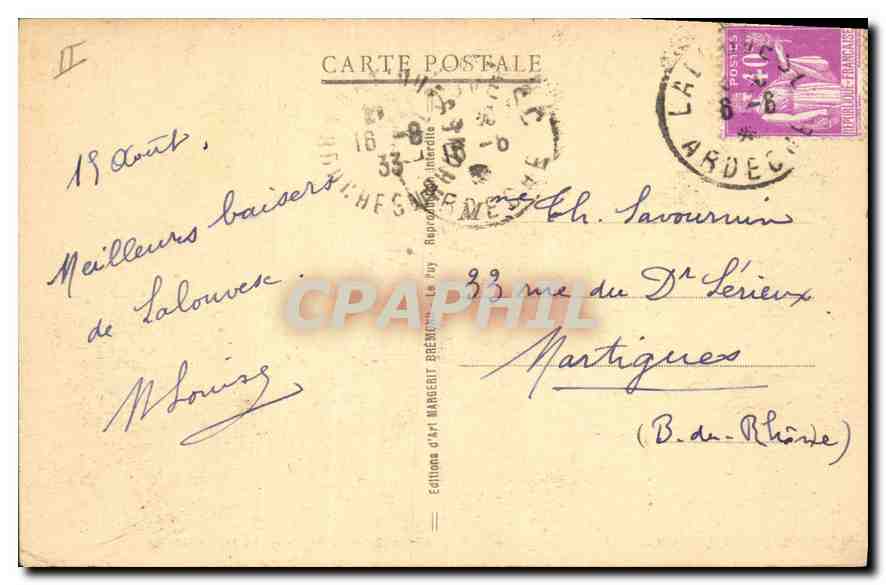 II
CARTE POSTALE
15 Août.
Meilleurs baisers
de Lalouvesc.
M Louise
Editions d'Art MARGERIT BRÉMOND - Le Puy Reproduction interdite
16 -8
33
POSTES
40c
REPUBLIQUE FRANÇAISE
6 -8
ARDECHE
Mme Th. Savournin
33 rue du Dr Sérieux
Martigues
(B.-du-Rhône)
CPAPHIL